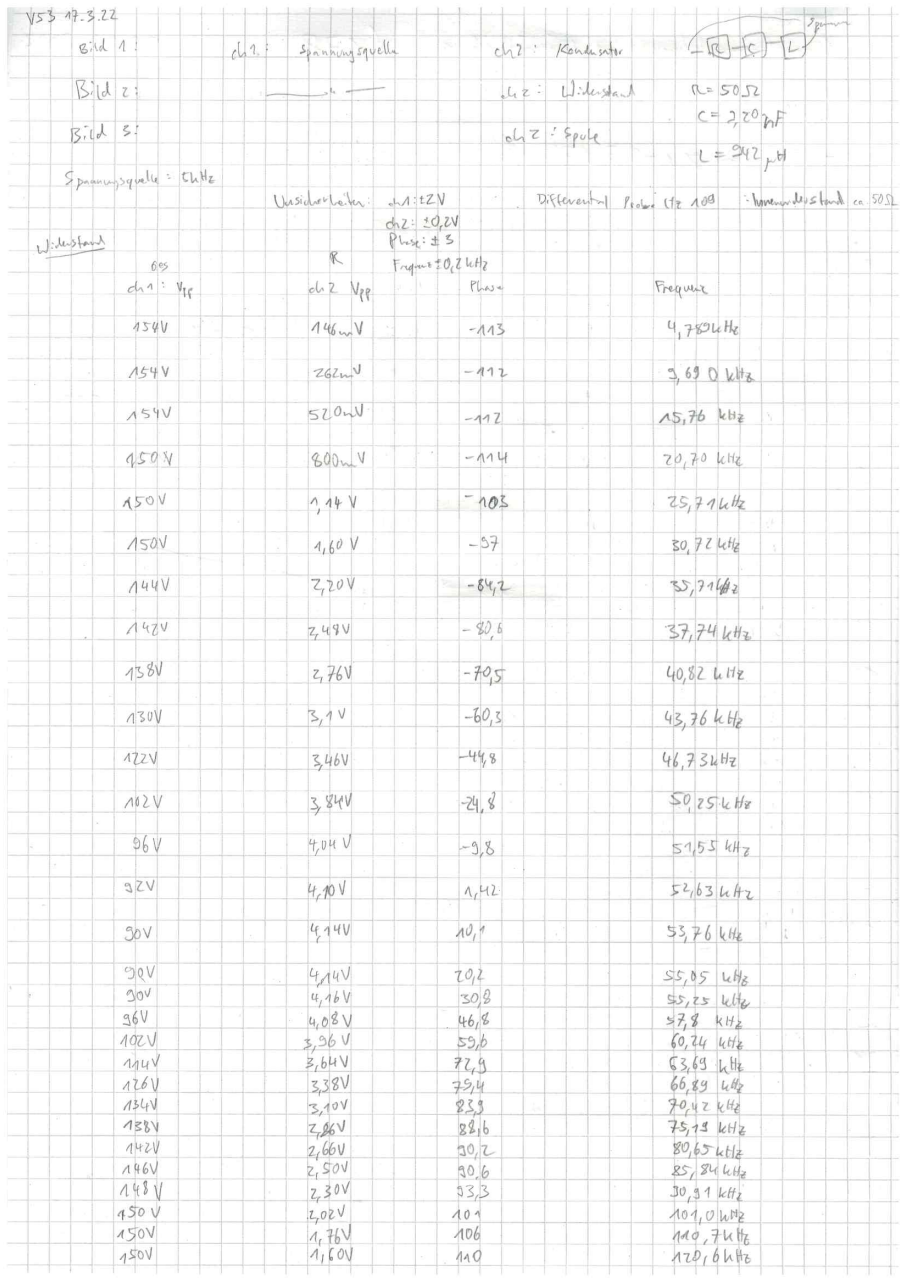 V53 17.3.22
Bild 1: ch1: Spannungsquelle ch2: Kondensator
R C L
Bild 2: —— " —— ch2: Widerstand R = 50Ω
C = 2,20 nF
Bild 3: ch2: Spule
L = 942 µH
Spannungsquelle: 5kHz
Unsicherheiten: ch1: ±2V Differential Probe Hz 109 : Innenwiderstand ca. 50Ω
ch2: ±0,2V
Phase: ±3
Widerstand
Frequenz ±0,2 kHz
ges R
ch1: Vpp ch2 Vpp Phase Frequenz
154V 146mV -113 4,789kHz
154V 262mV -112 9,690 kHz
154V 520mV -112 15,76 kHz
150V 800mV -114 20,70 kHz
150V 1,14 V -103 25,71kHz
150V 1,60 V -97 30,72kHz
144V 2,20V -84,2 35,71kHz
142V 2,48V -80,6 37,74 kHz
138V 2,76V -70,5 40,82 kHz
130V 3,1V -60,3 43,76 kHz
122V 3,46V -44,8 46,73kHz
102V 3,84V -24,8 50,25 kHz
96V 4,04 V -9,8 51,55 kHz
92V 4,10V 1,42 52,63 kHz
90V 4,14V 10,1 53,76 kHz
90V 4,14V 20,2 55,05 kHz
90V 4,16V 30,8 55,25 kHz
96V 4,08V 46,8 57,8 kHz
102V 3,96V 59,6 60,24 kHz
114V 3,64V 72,9 63,69 kHz
126V 3,38V 79,4 66,89 kHz
134V 3,10V 83,9 70,42 kHz
138V 2,86V 88,6 75,19 kHz
142V 2,66V 90,2 80,65 kHz
146V 2,50V 90,6 85,84 kHz
148V 2,30V 93,3 90,91 kHz
150V 2,02V 101 101,0 kHz
150V 1,76V 106 110,7kHz
150V 1,60V 110 120,6kHz